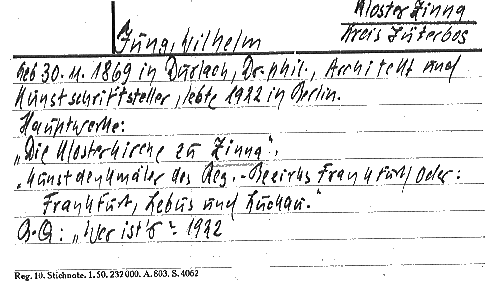 Kloster Zinna
Kreis Jüterbog
Jung, Wilhelm
geb 30. 11. 1869 in Durlach, Dr. phil., Architekt und
Kunstschriftsteller, lebte 1922 in Berlin.
Hauptwerke:
„Die Klosterkirche zu Zinna".
„Kunstdenkmäler des Reg.-Bezirks Frankfurt/Oder:
Frankfurt, Lebus und Luckau."
B.Q: „Wer ist's" 1922
Reg. 10. Stichnote. 1. 50. 232000. A. 803. S. 4062